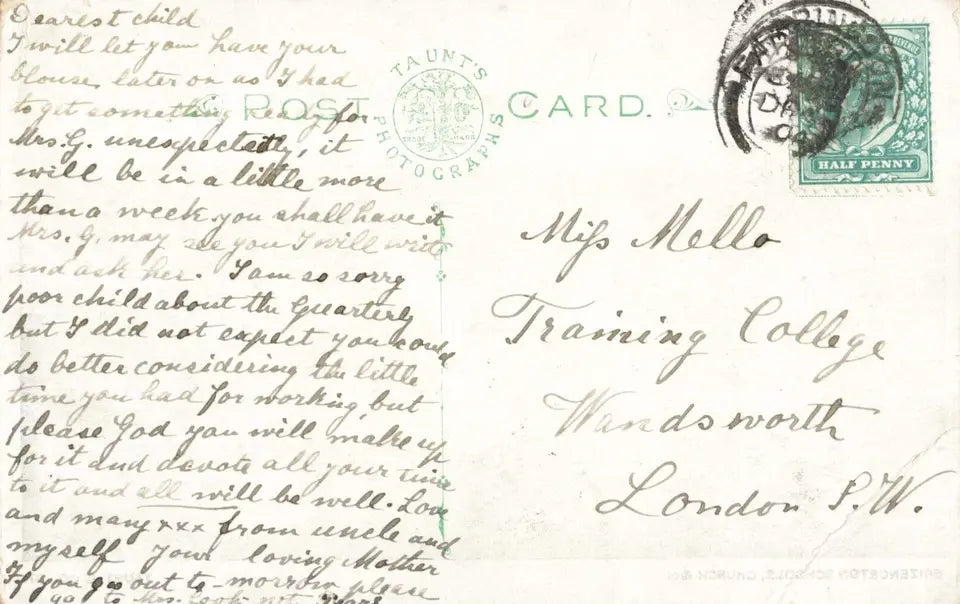 Dearest child
I will let you have your
blouse later on as I had
to get something ready for
Mrs. G. unexpectedly, it
will be in a little more
than a week you shall have it
Mrs. G. may see you I will write
and ask her. I am so sorry
poor child about the Quarterly
but I did not expect you could
do better considering the little
time you had for working, but
please God you will make up
for it and devote all your time
to it and all will be well. Love
and many xxx from uncle and
myself your loving Mother
If you go out to-morrow please
go to Mrs. Cook not
POST CARD.
TAUNT'S
PHOTOGRAPHS
TRADE MARK
FARINGDON
DE
04
REVENUE
HALF PENNY
Miss Mello
Training College
Wandsworth
London S.W.
BRIZENORTON SCHOOLS, CHURCH &